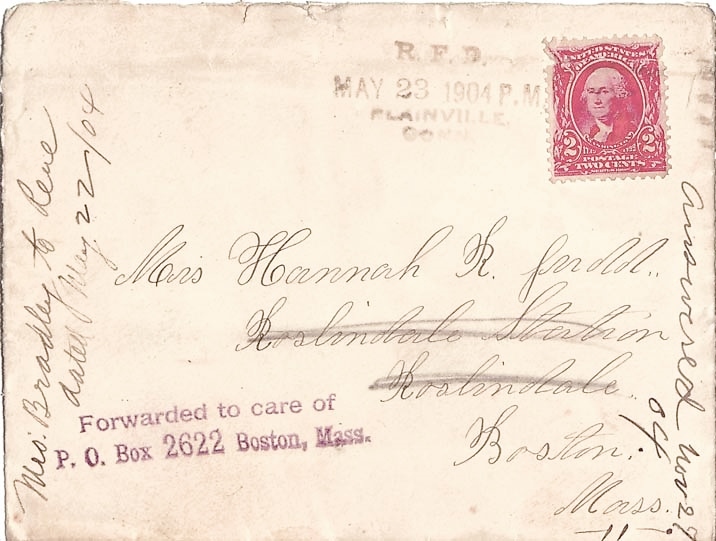 R.F.D.
MAY 23 1904 P.M
PLAINVILLE,
CONN.
UNITED STATES
OF AMERICA
2 2
WASHINGTON
POSTAGE
TWO CENTS
Mrs. Bradley to Rene
dated May 22/04
Miss Hannah R. Judd.
Roslindale Station
Roslindale.
Boston.
Mass.
Forwarded to care of
P. O. Box 2622 Boston, Mass.
answered Nov 27
04